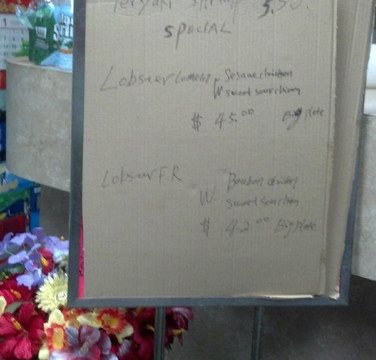 Teriyaki Shrimp 5.50.
special
Lobster Lomein Sesame chicken
W sweet sour chicken
$ 45.00 Big Plate
Lobster FR Bourbon chicken
W sweet sour chicken
$ 42.00 Big Plate